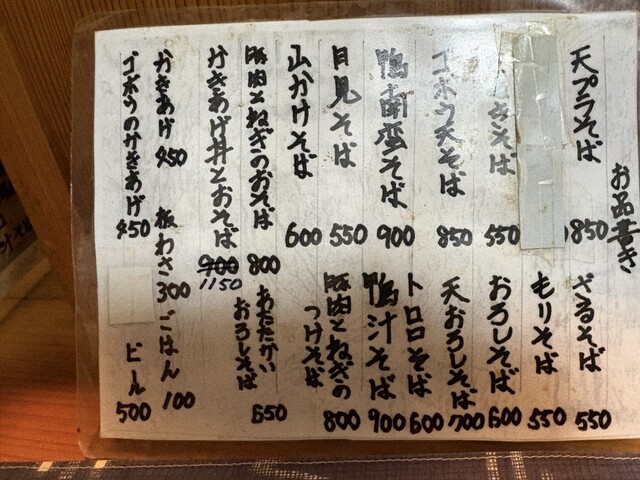 お品書き
天プラそば 850
そば 550
ゴボウ天そば 850
鴨南蛮そば 900
月見そば 550
山かけそば 600
豚肉とねぎのおそば 800
かきあげ丼とおそば 900 1150
かきあげ 450
ゴボウのかきあげ 450
ざるそば 550
もりそば 550
おろしそば 600
天おろしそば 700
トロロそば 600
鴨汁そば 900
豚肉とねぎのつけそば 800
あたたかいおろしそば 650
板わさ 300
ごはん 100
ビール 500